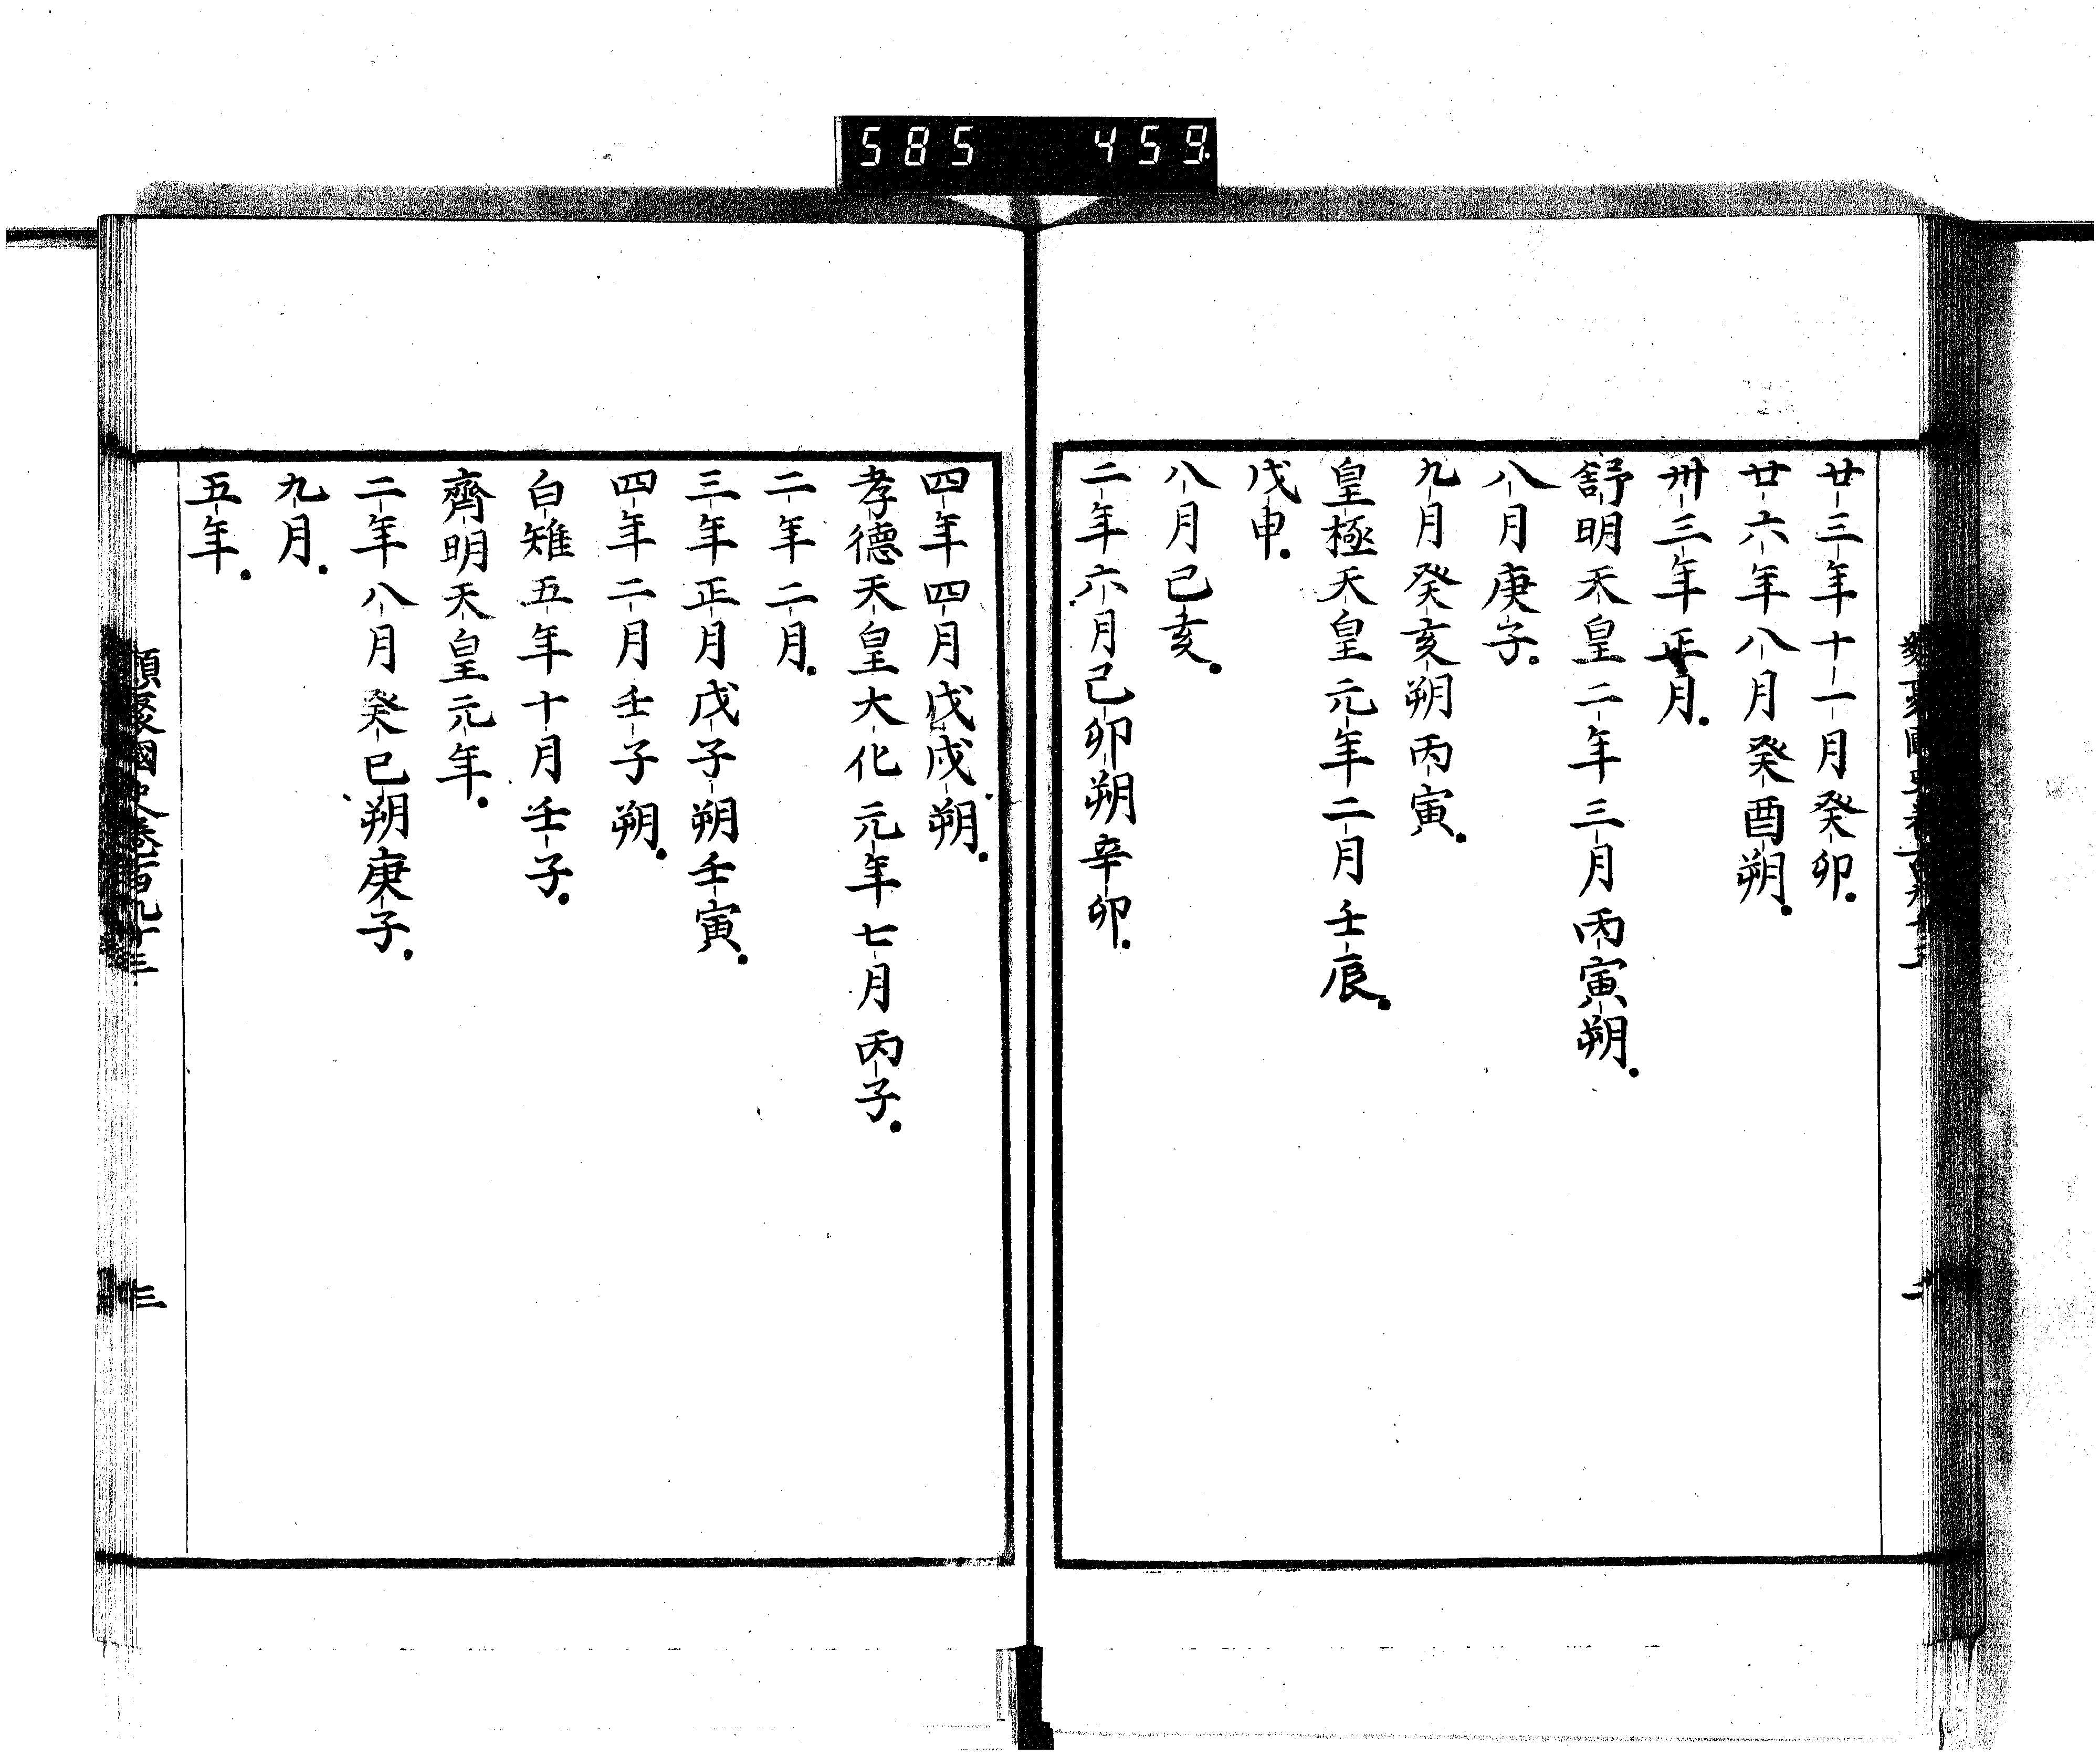 585 459
廿三年十一月癸卯.
廿六年八月癸酉朔.
卅三年正月.
舒明天皇二年三月丙寅朔.
八月庚子.
九月癸亥朔丙寅.
皇極天皇元年二月壬辰.
戊申.
八月己亥.
二年六月己卯朔辛卯.
四年四月戊戌朔.
孝德天皇大化元年七月丙子.
二年二月.
三年正月戊子朔壬寅.
四年二月壬子朔.
白雉五年十月壬子.
齊明天皇元年.
二年八月癸巳朔庚子.
九月.
五年.
類聚國史卷百九十三
三